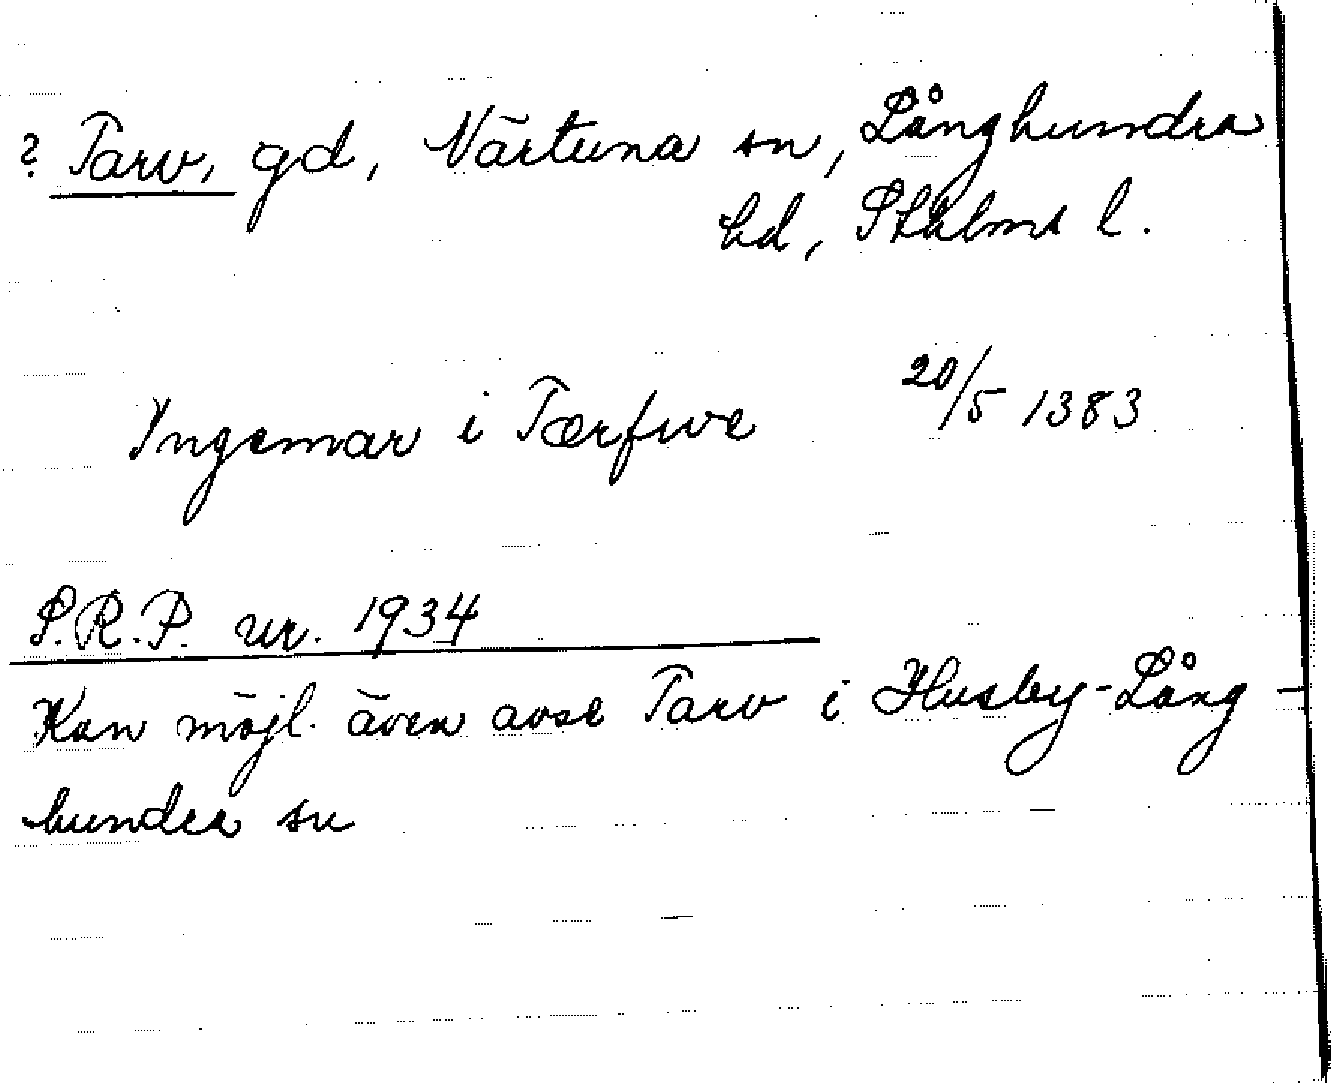 ? Tarv, gd, Närtuna sn, Långhundra
hd, Sthlms l.
Ingemar i Tærfwe 20/5 1383
S.R.P. nr. 1934
Kan möjl. även avse Tarv i Husby-Lång-
hundra sn